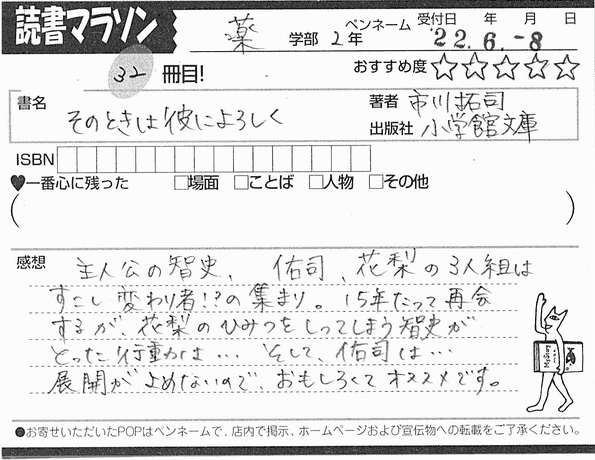 読書マラソン
薬 学部 2年 ペンネーム 受付日 年 月 日
'22.6.-8
32 冊目! おすすめ度☆☆☆☆☆
書名 そのときは彼によろしく
著者 市川拓司
出版社 小学館文庫
ISBN
♥一番心に残った □場面 □ことば □人物 □その他
( )
感想 主人公の智史、佑司、花梨の3人組は
すこし変わり者!?の集まり。15年たって再会
するが、花梨のひみつをしってしまう智史が
とった行動は… そして、佑司は…
展開がよめないので、おもしろくてオススメです。
●お寄せいただいたPOPはペンネームで、店内で掲示、ホームページおよび宣伝物への転載をご了承ください。